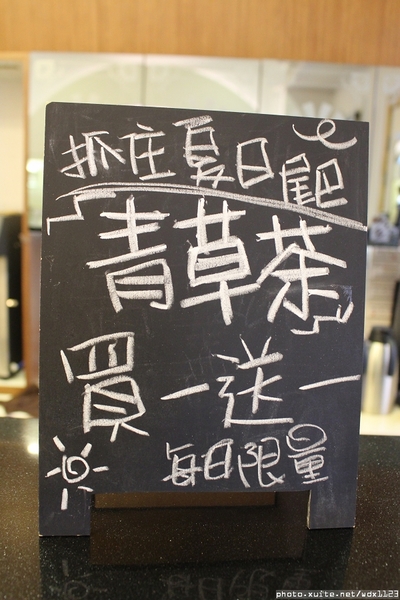 抓住夏日尾巴
青草茶
買一送一
每日限量
photo.xuite.net/wdx1123